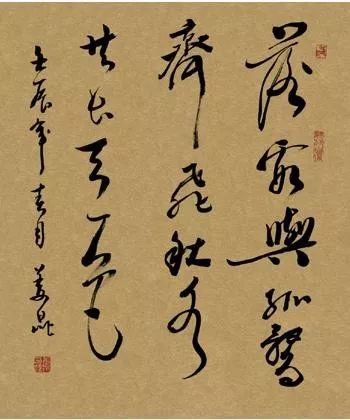 落霞與孤鶩
齊飛秋水
共長天一色
壬辰年春月